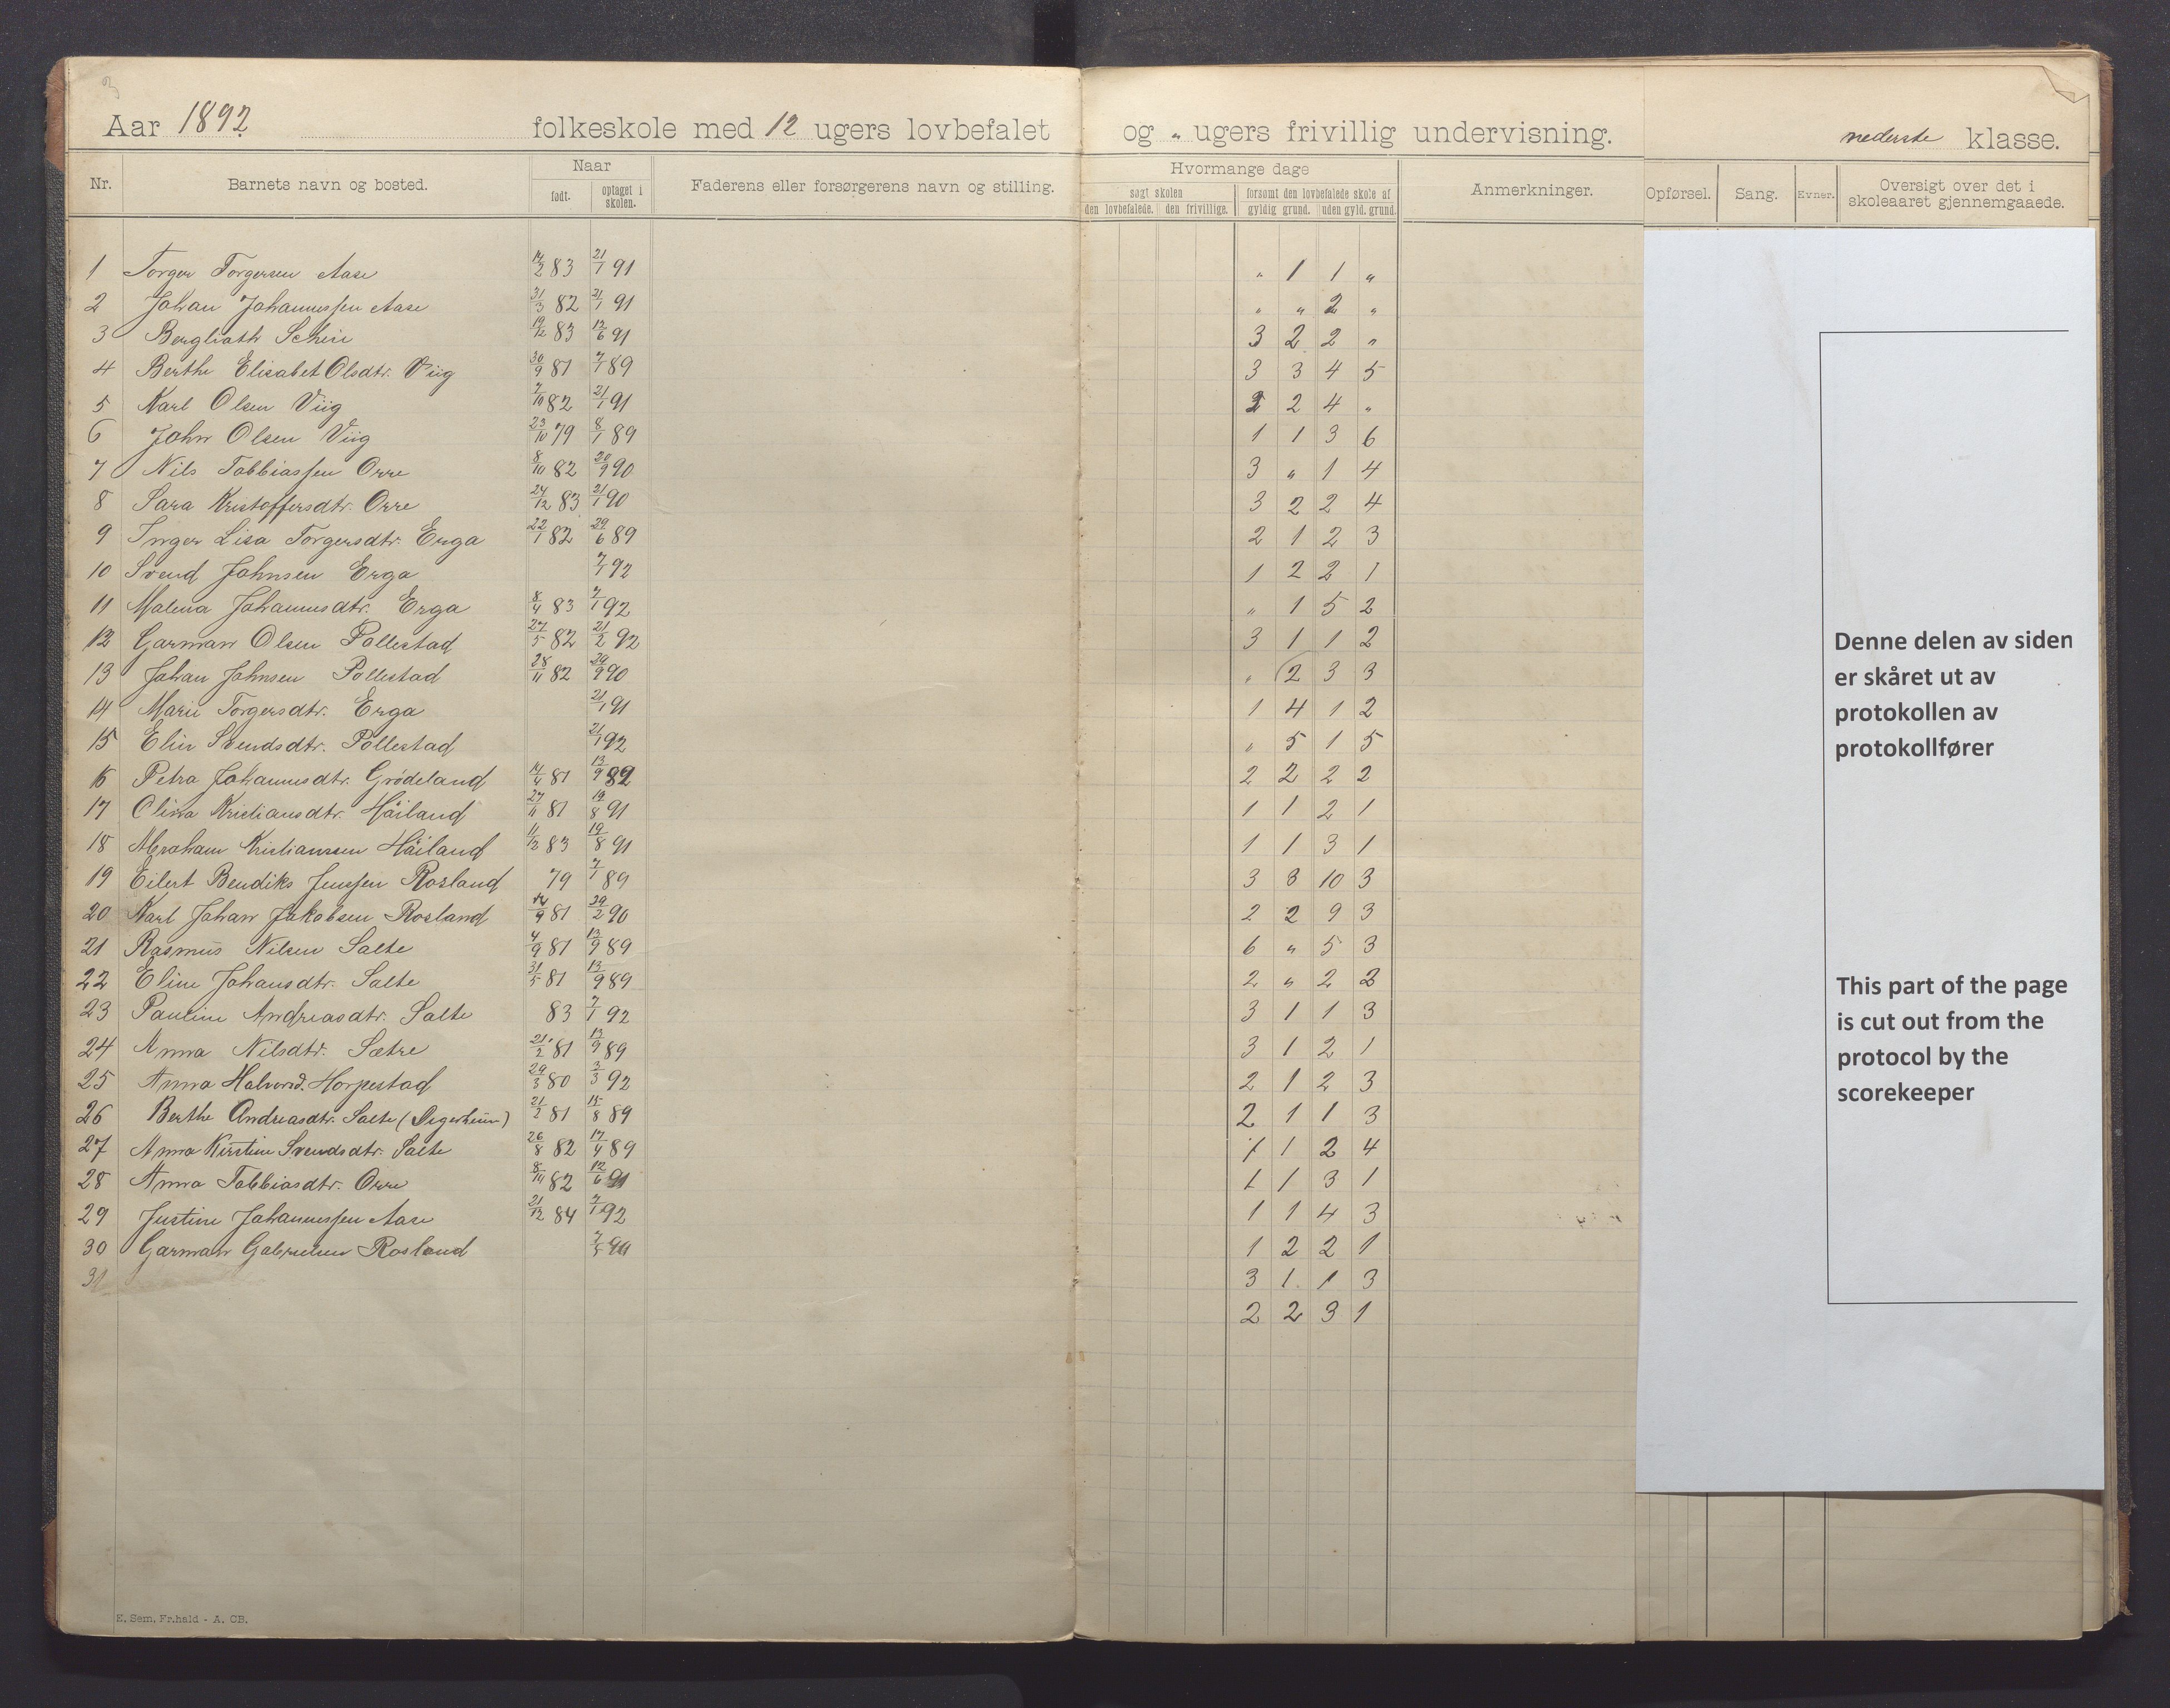 Aar 1892 folkeskole med 12 ugers lovbefalet og " ugers frivillig undervisning. nederste klasse.
Nr. Barnets navn og bosted. Naar født. optaget i skolen. Faderens eller forsørgerens navn og stilling. Hvormange dage søgt skolen den lovbefalede. den frivillige. forsømt den lovbefalede skole af gyldig grund. uden gyld. grund. Anmerkninger. Opførsel. Sang. Evner. Oversigt over det i skoleaaret gjennemgaaede.
1 Torger Torgersen Aase 14/2 83 21/1 91 " 1 1 "
2 Johan Johannessen Aase 31/3 82 21/1 91 " " 2 "
3 Bergliath 19/12 83 12/6 91 3 2 2 "
4 Berthe Elisabet Olsdtr. Viig 30/9 81 7/1 89 3 3 4 5
5 Karl Olsen Viig 7/10 82 21/1 91 2 2 4 "
6 John Olsen Viig 23/10 79 8/1 89 1 1 3 6
7 Nils Tobbiassen Orre 8/10 82 20/9 90 3 " 1 4
8 Sara Kristoffersdtr. Orre 24/12 83 21/1 90 3 2 2 4
9 Inger Lisa Torgersdtr. Erga 22/1 82 29/6 89 2 1 2 3
10 Svend Johnsen Erga 7/1 92 1 2 2 1
11 Malena Johannesdtr. Erga 8/4 83 7/1 92 " 1 5 2
12 Garman Olsen Pollestad 27/5 82 21/2 92 3 1 1 2
13 Johan Johnsen Pollestad 28/11 82 29/9 90 " 2 3 3
14 Marie Torgersdtr. Erga 21/1 91 1 4 1 2
15 Elin Svendsdtr. Pollestad 21/1 92 " 5 1 5
16 Petra Johannesdtr. Grödeland 14/4 81 13/9 89 2 2 2 2
17 Olina Kristiansdtr. Häiland 27/11 81 19/8 91 1 1 2 1
18 Abraham Kristianssen Häiland 11/12 83 19/8 91 1 1 3 1
19 Eilert Bendiks Jenssen Rosland 79 7/1 89 3 3 10 3
20 Karl Johan Jakobsen Rosland 14/9 81 29/2 90 2 2 9 3
21 Rasmus Nilsen Salte 4/9 81 13/9 89 6 " 5 3
22 Eline Johansdtr. Salte 31/5 81 13/9 89 2 " 2 2
23 Pauline Andreasdtr. Salte 83 7/1 92 3 1 1 3
24 Anna Nilsdtr. Sætre 21/2 81 13/9 89 3 1 2 1
25 Anna Halvorsd. Horpestad 29/3 80 2/3 92 2 1 2 3
26 Berthe Andreasdtr. Salte 21/2 81 15/8 89 2 1 1 3
27 Anna Kirstine Svendsdtr. Salte 26/8 82 17/4 89 1 1 2 4
28 Anna Tobbiasdtr. Orre 8/10 82 12/6 91 1 1 3 1
29 Justine Johannessen Aase 21/12 84 7/1 92 1 1 4 3
30 Garman Gabrielsen Rosland 1 2 2 1
31 3 1 1 3
2 2 3 1
Denne delen av siden
er skåret ut av
protokollen av
protokollfører
This part of the page
is cut out from the
protocol by the
scorekeeper
E. Sem, Fr.hald - A. CB.